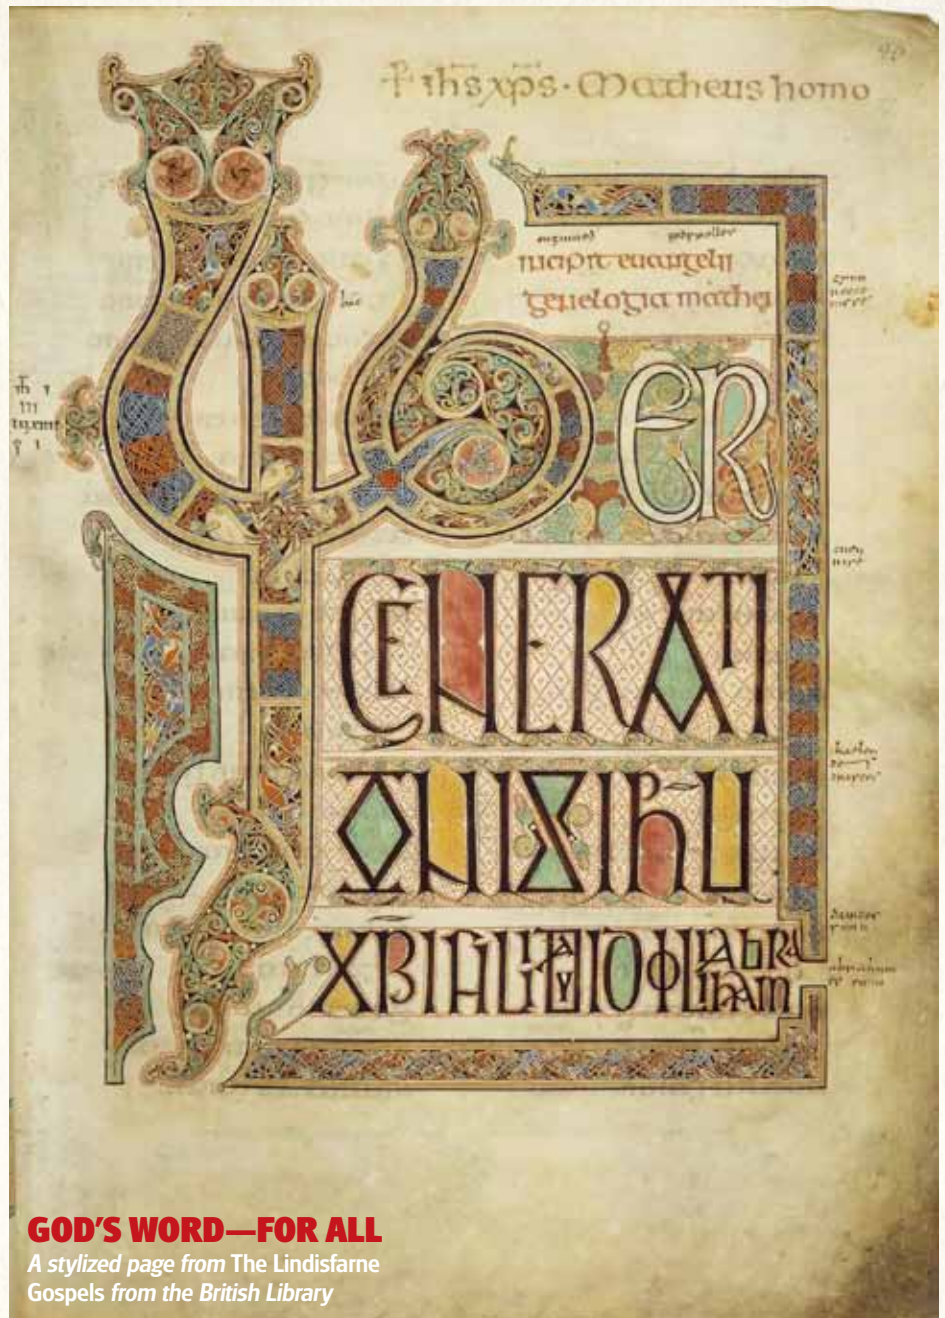 + ihs xps · Matheus homo
incipit euangelii
genelogia mathei
LIBER
GENERATI
ONIS IHU
XPI FILII DAVID FILII ABRAHAM
GOD'S WORD—FOR ALL
A stylized page from The Lindisfarne
Gospels from the British Library